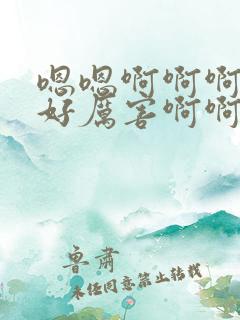 嗯嗯啊啊啊
好厉害啊啊
鲁肃
未经同意禁止转载